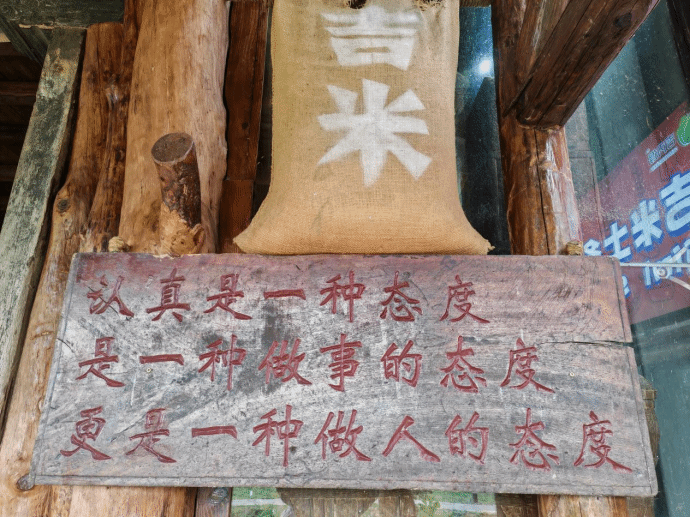 吉米
认真是一种态度
是一种做事的态度
更是一种做人的态度
士米吉